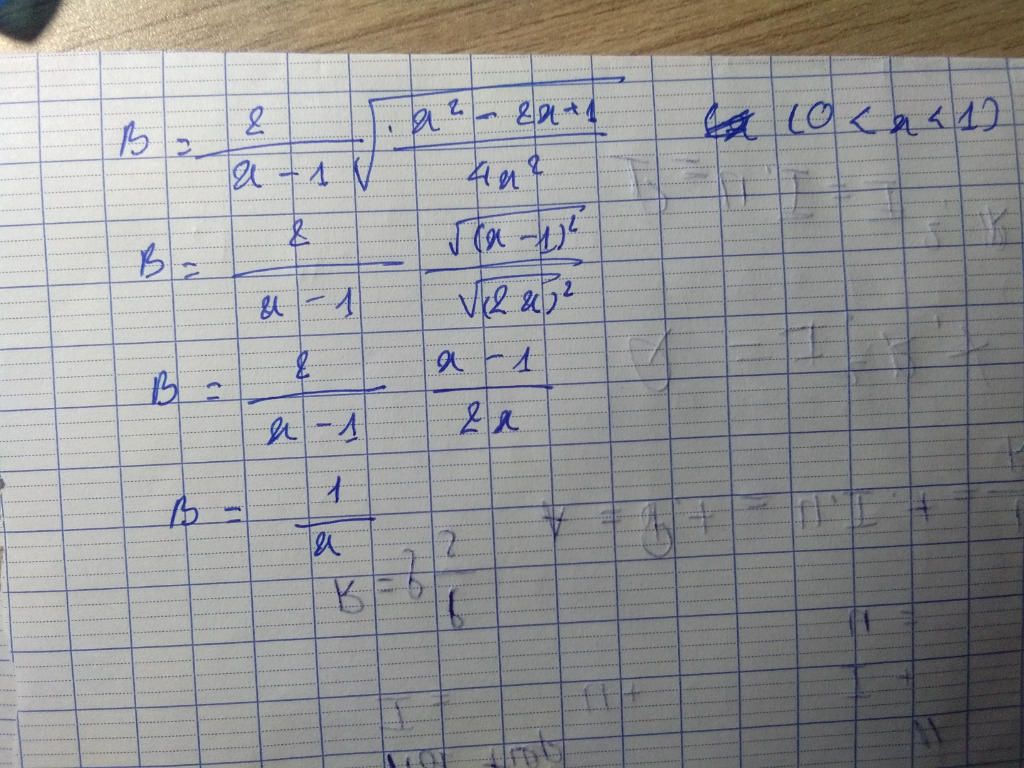 B = 2/(x - 1) √((x² - 2x + 1)/(4x²)) (0 < x < 1)
B = 2/(x - 1) √(x - 1)²/√(2x)²
B = 2/(x - 1) (x - 1)/(2x)
B = 1/x